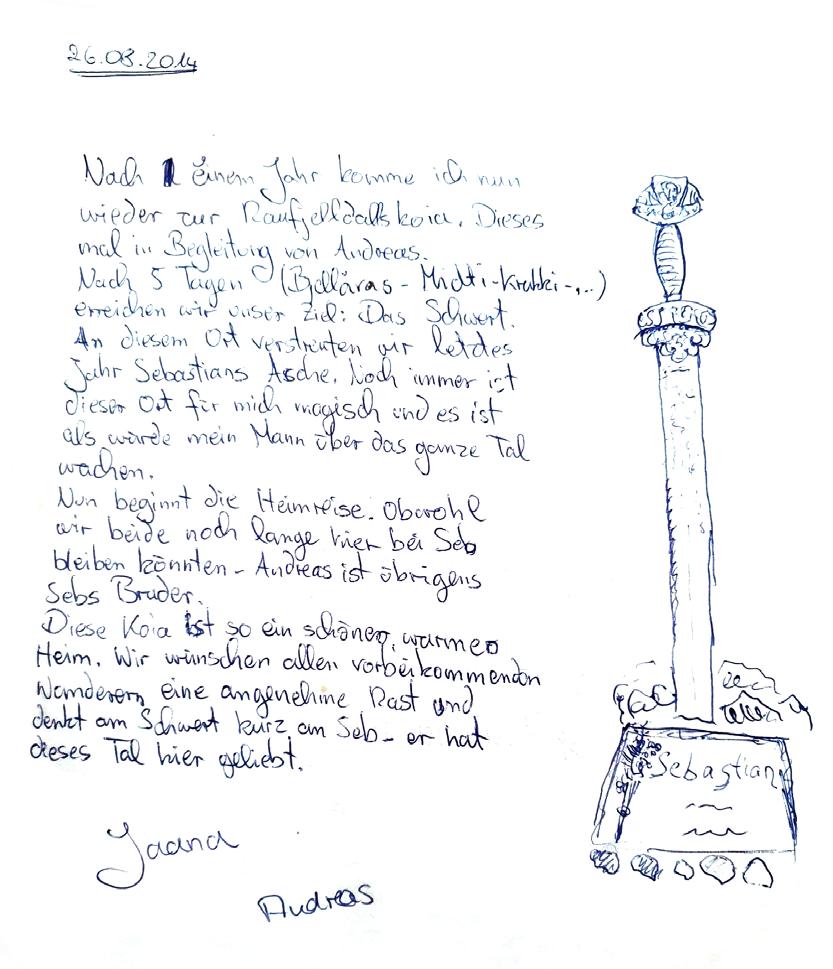 26.08.2014
Nach 1 einem Jahr komme ich nun
wieder zur Raufjelldalskoia. Dieses
mal in Begleitung von Andreas.
Nach 5 Tagen (Bellåras - Midti-Krabki-,..)
erreichen wir unser Ziel: Das Schwert.
An diesem Ort verstreuten wir letztes
Jahr Sebastians Asche. Noch immer ist
dieser Ort für mich magisch und es ist
als würde mein Mann über das ganze Tal
wachen.
Nun beginnt die Heimreise. Obwohl
wir beide noch lange hier bei Seb
bleiben könnten - Andreas ist übrigens
Sebs Bruder.
Diese Koia ist so ein schönes, warmes
Heim. Wir wünschen allen vorbeikommenden
Wanderern eine angenehme Rast und
denkt am Schwert kurz an Seb - er hat
dieses Tal hier geliebt.
Jaana
Andreas
Sebastian